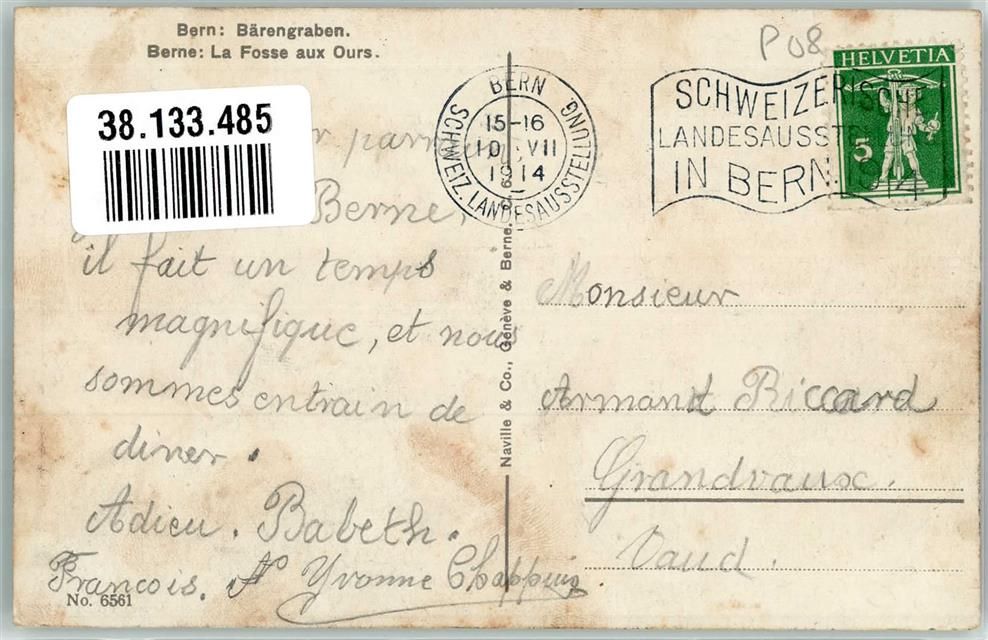 Bern: Bärengraben.
Berne: La Fosse aux Ours.
P 08
38.133.485
Berne,
il fait un temps
magnifique, et nous
sommes entrain de
diner.
Adieu. Babeth.
François. Yvonne Chappuis.
No. 6561
Naville & Co., Genève & Berne.
BERN
15-16
10 VII
1914
SCHWEIZ. LANDESAUSSTELLUNG.
SCHWEIZERISCHE
LANDESAUSSTELLUNG
IN BERN. 1914
HELVETIA
5
Monsieur
Armand Riccard
Grandvaux.
Vaud.